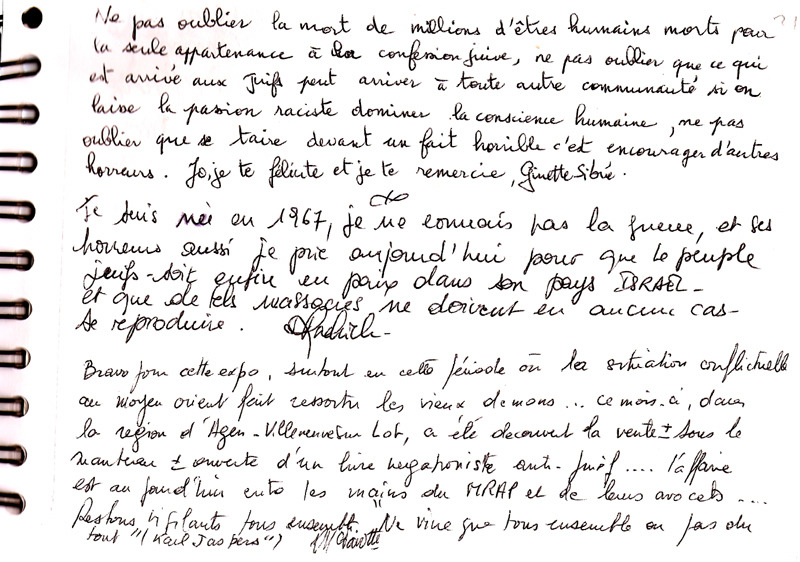 Ne pas oublier la mort de millions d'êtres humains morts pour
la seule appartenance à la confession juive, ne pas oublier que ce qui
est arrivé aux Juifs peut arriver à toute autre communauté si on
laisse la passion raciste dominer la conscience humaine, ne pas
oublier que se taire devant un fait horrible c'est encourager d'autres
horreurs. Jo, je te félicite et je te remercie, Ginette Sibié.
Je suis née en 1967, je ne connais pas la guerre, et ses
horreurs aussi je prie aujourd'hui pour que le peuple
juifs - soit enfin en paix dans son pays ISRAEL -
et que de tels massacres ne doivent en aucun cas -
se reproduire.
Bravo pour cette expo, surtout en cette période où la situation conflictuelle
au moyen orient fait ressortir les vieux démons... ce mois-ci, dans
la région d'Agen - Villeneuve sur Lot, a été découvert la vente ± sous le
manteau ± ouverte d'un livre négationiste anti-juif.... l'affaire
est aujourd'hui entre les mains du MRAP et de leurs avocats....
Restons vigilants tous ensemble. "Ne vivre que tous ensemble ou pas du
tout" (Karl Jaspers")